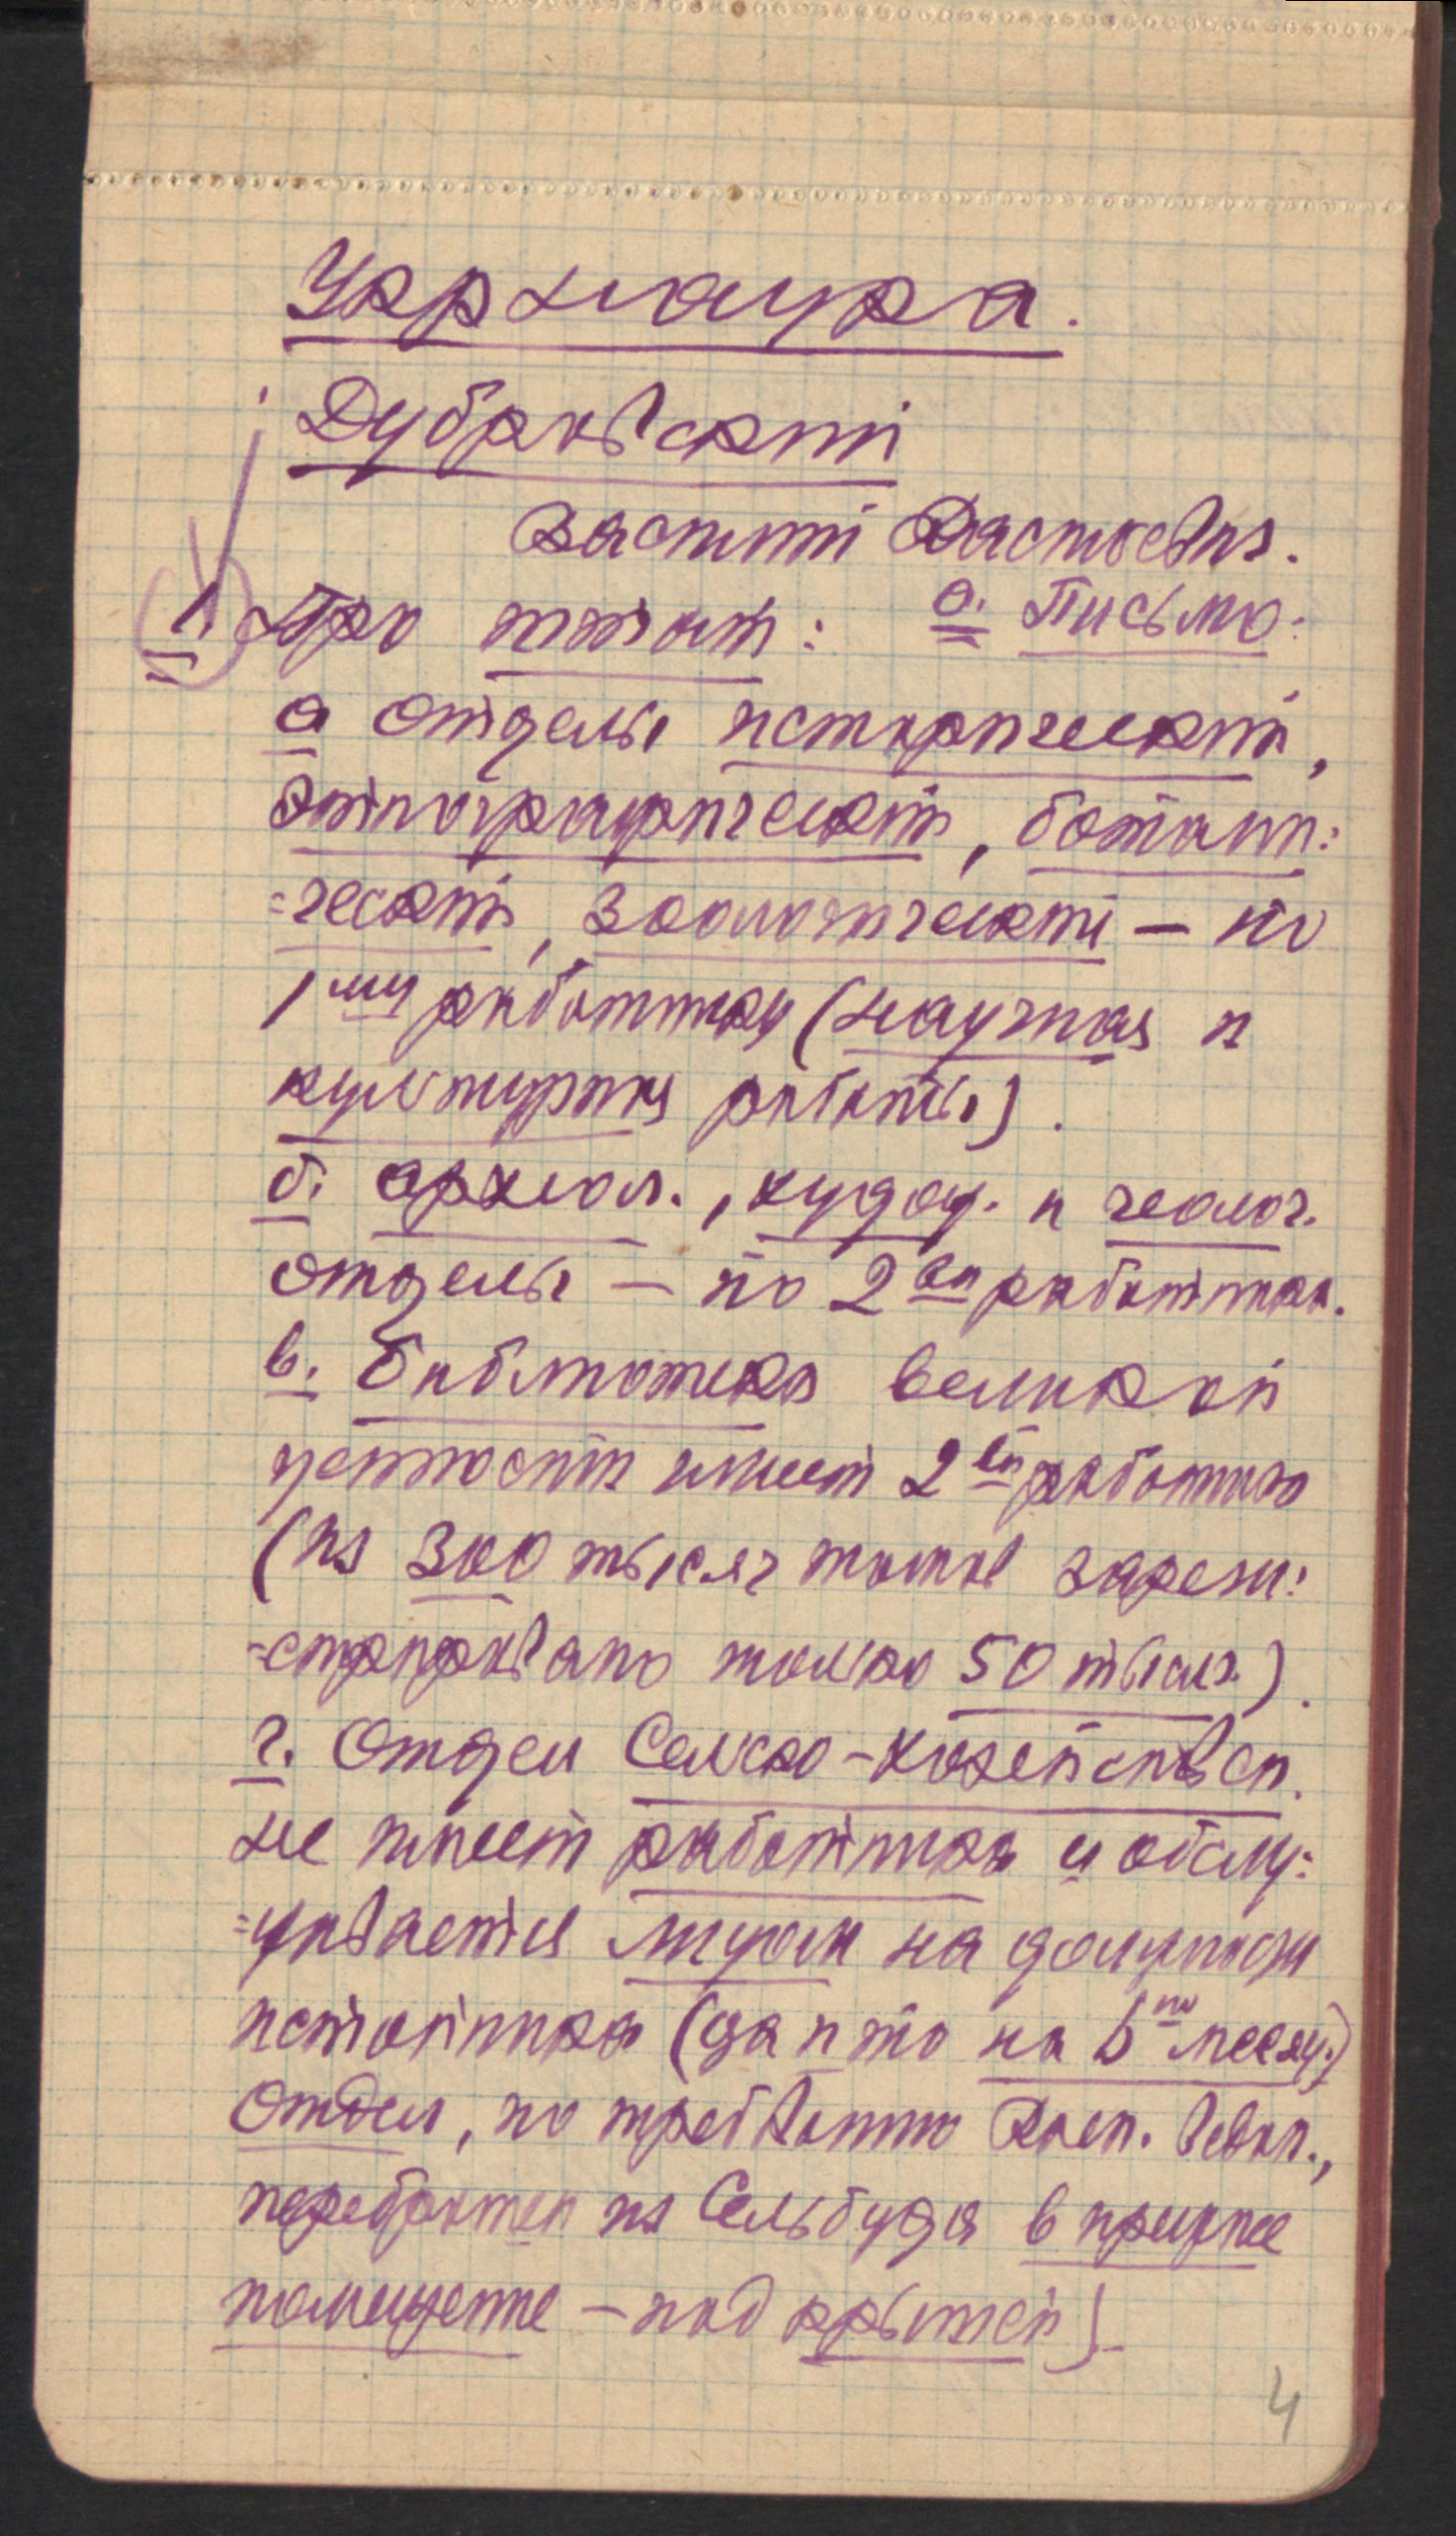 Укрнаука.
Дубровский
1. Про штат: а. Письмо:
а отделы исторический,
этнографический, ботани:
=ческий, зоологический — по
1му работнику (научная и
культурная работы).
б. археол., худож. и геолог.
отделы — по 2ва работника.
в. Библиотека великой
ценности имеет 2ва работника
(из 300 тысяч томов зареги:
=стрировано только 50 тысяч).
г. Отдел Сельско-хозяйствен.
не имеет работника и обслу:
=живается лицом на должности
(да и то на 6 месяц.)
Отдел, по требованию
переброшен из Сельбуда в
помещение — под крышей).
4